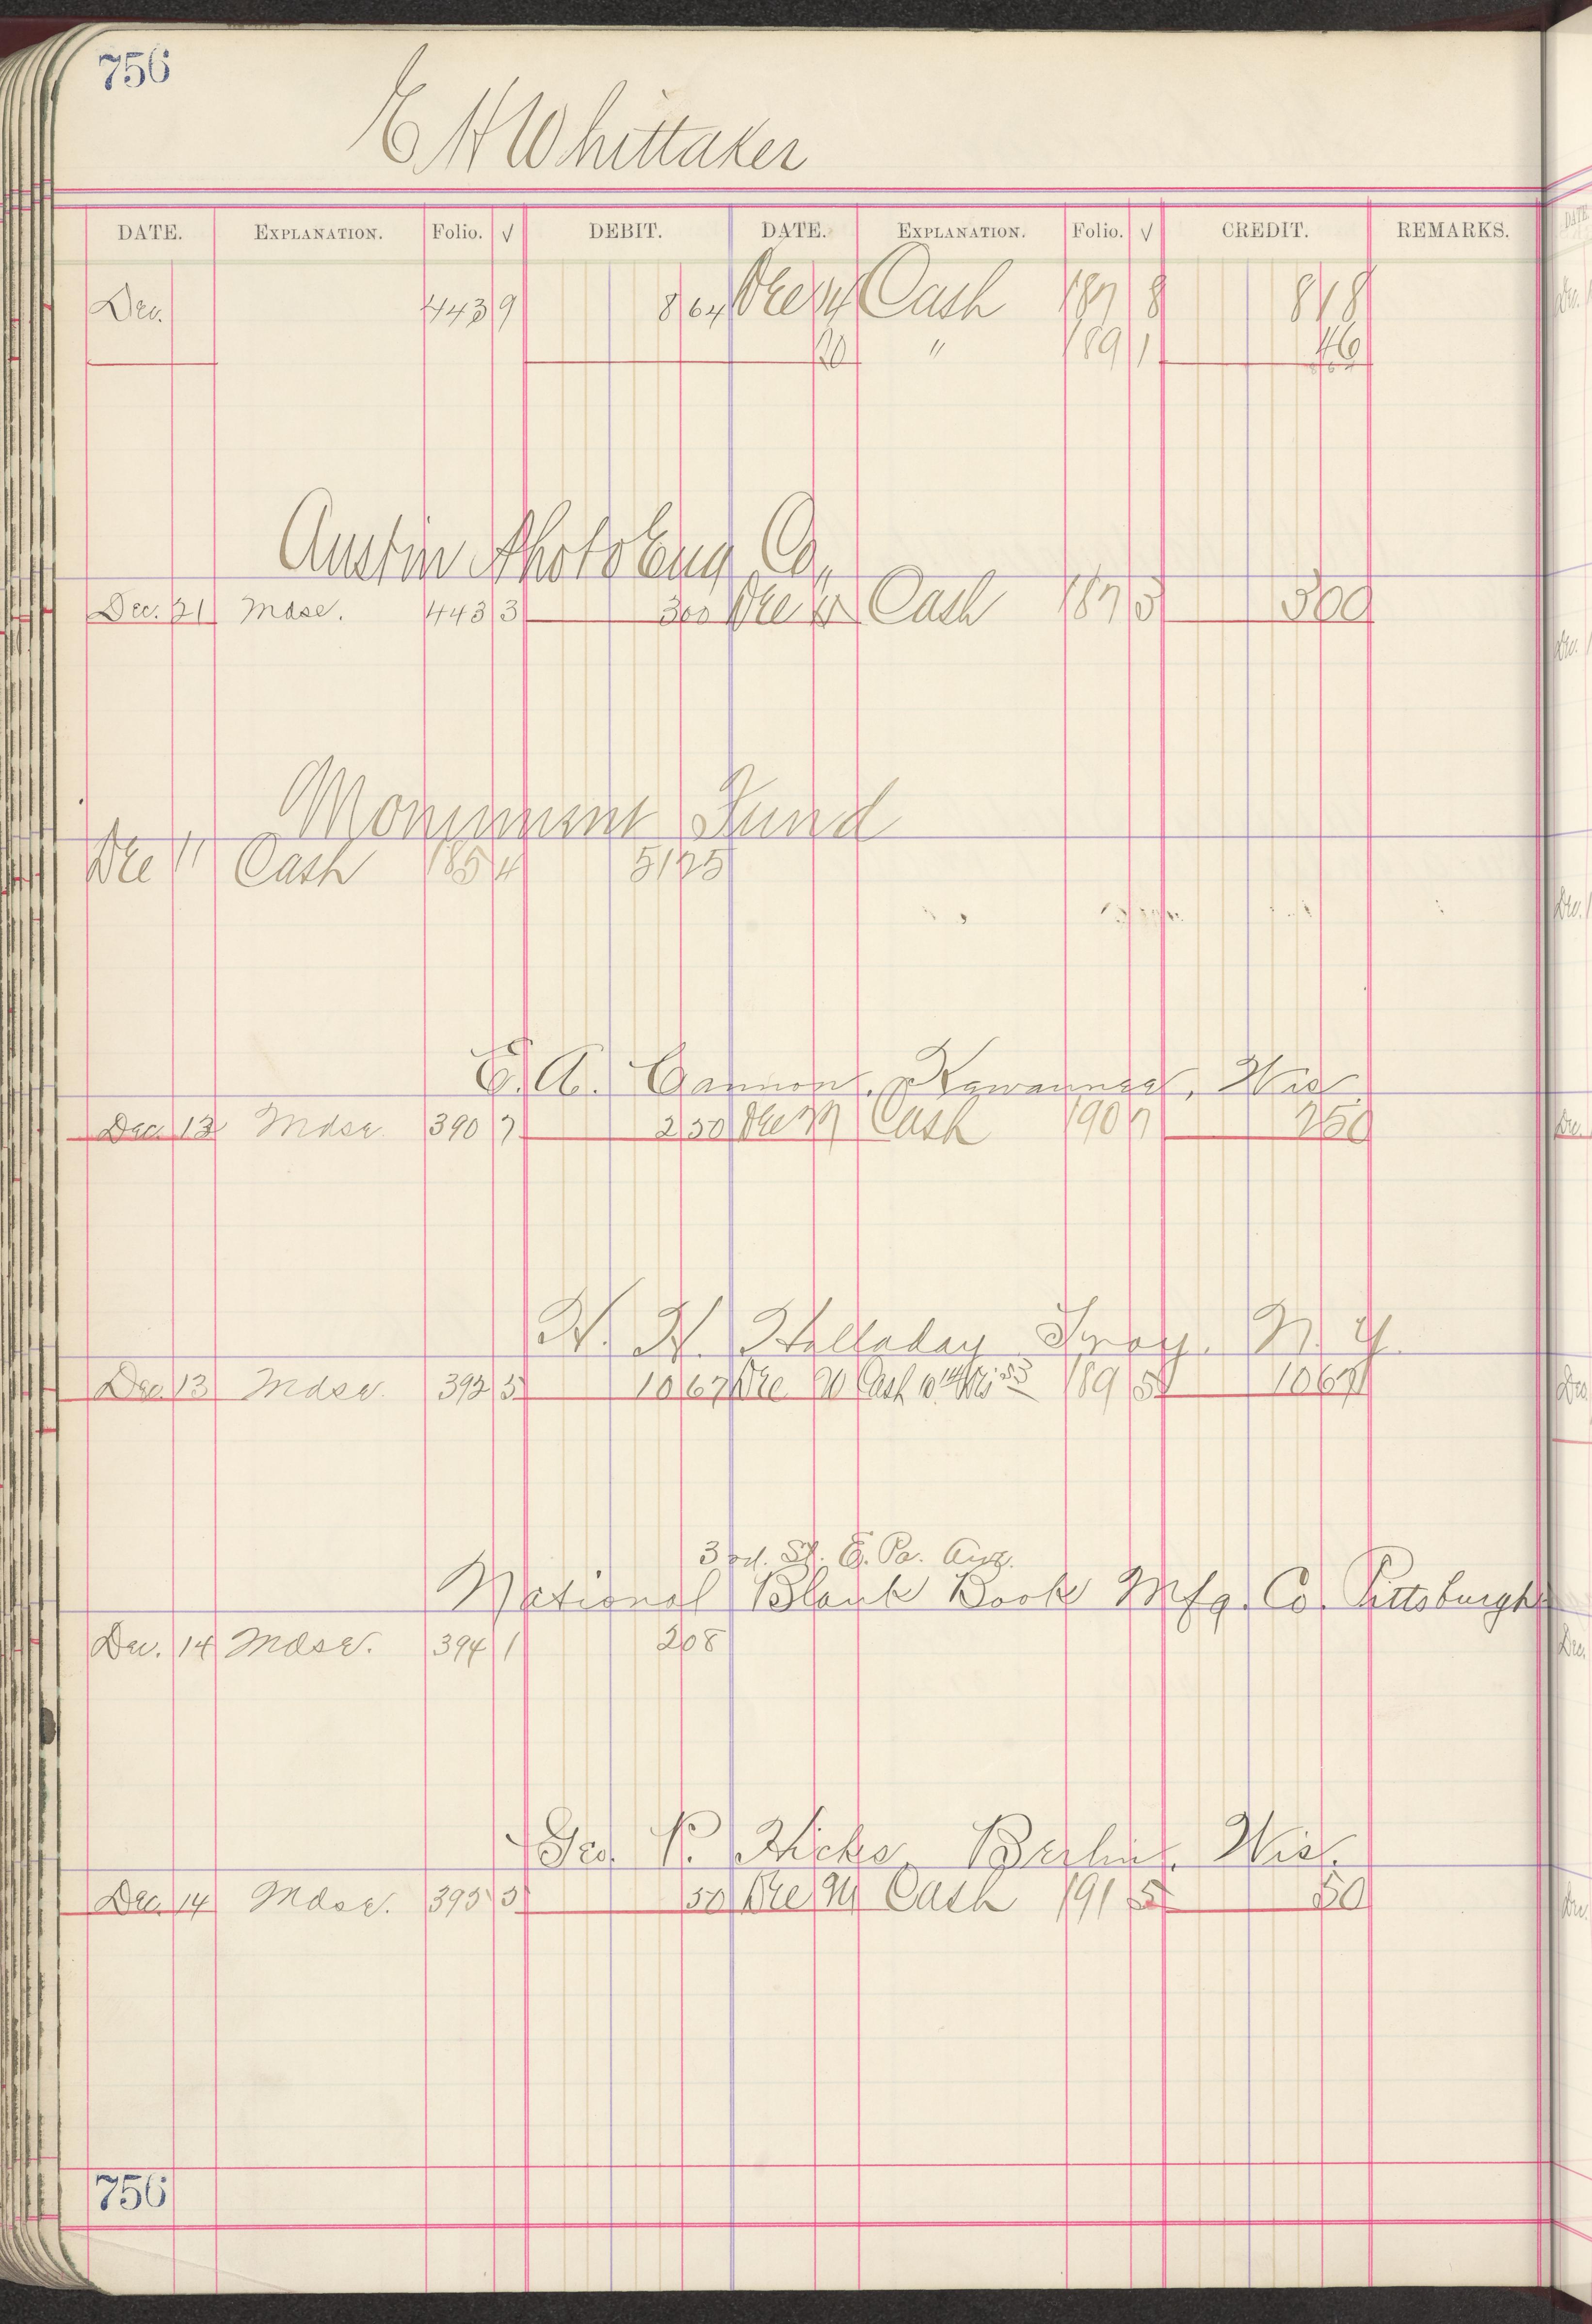 756
E H Whittaker
DATE. EXPLANATION. Folio. √ DEBIT. DATE. EXPLANATION. Folio. √ CREDIT. REMARKS.
Dec. 443 9 8 64 Dec 14 Cash 187 8 8 18
20 " 189 1 46
Austin Photo Eng Co.
Dec. 21 Mdse. 443 3 300 Dec Cash 187 5 300
Monument Fund
Dec 11 Cash 185 4 51 75
E. A. Cannon, Kewaunee, Wis
Dec. 13 Mdse. 390 7 2 50 Dec Cash 190 7 250
H. H. Halladay Troy. N. Y.
Dec. 13 Mdse. 392 5 10 67 Dec 20 Cash 189 5 1067
3rd. St. & Pa. Ave.
National Blank Book Mfg. Co. Pittsburgh
Dec. 14 Mdse. 394 1 208
Geo. P. Hicks, Berlin, Wis.
Dec. 14 Mdse. 395 5 50 Dec 24 Cash 191 5 50
756